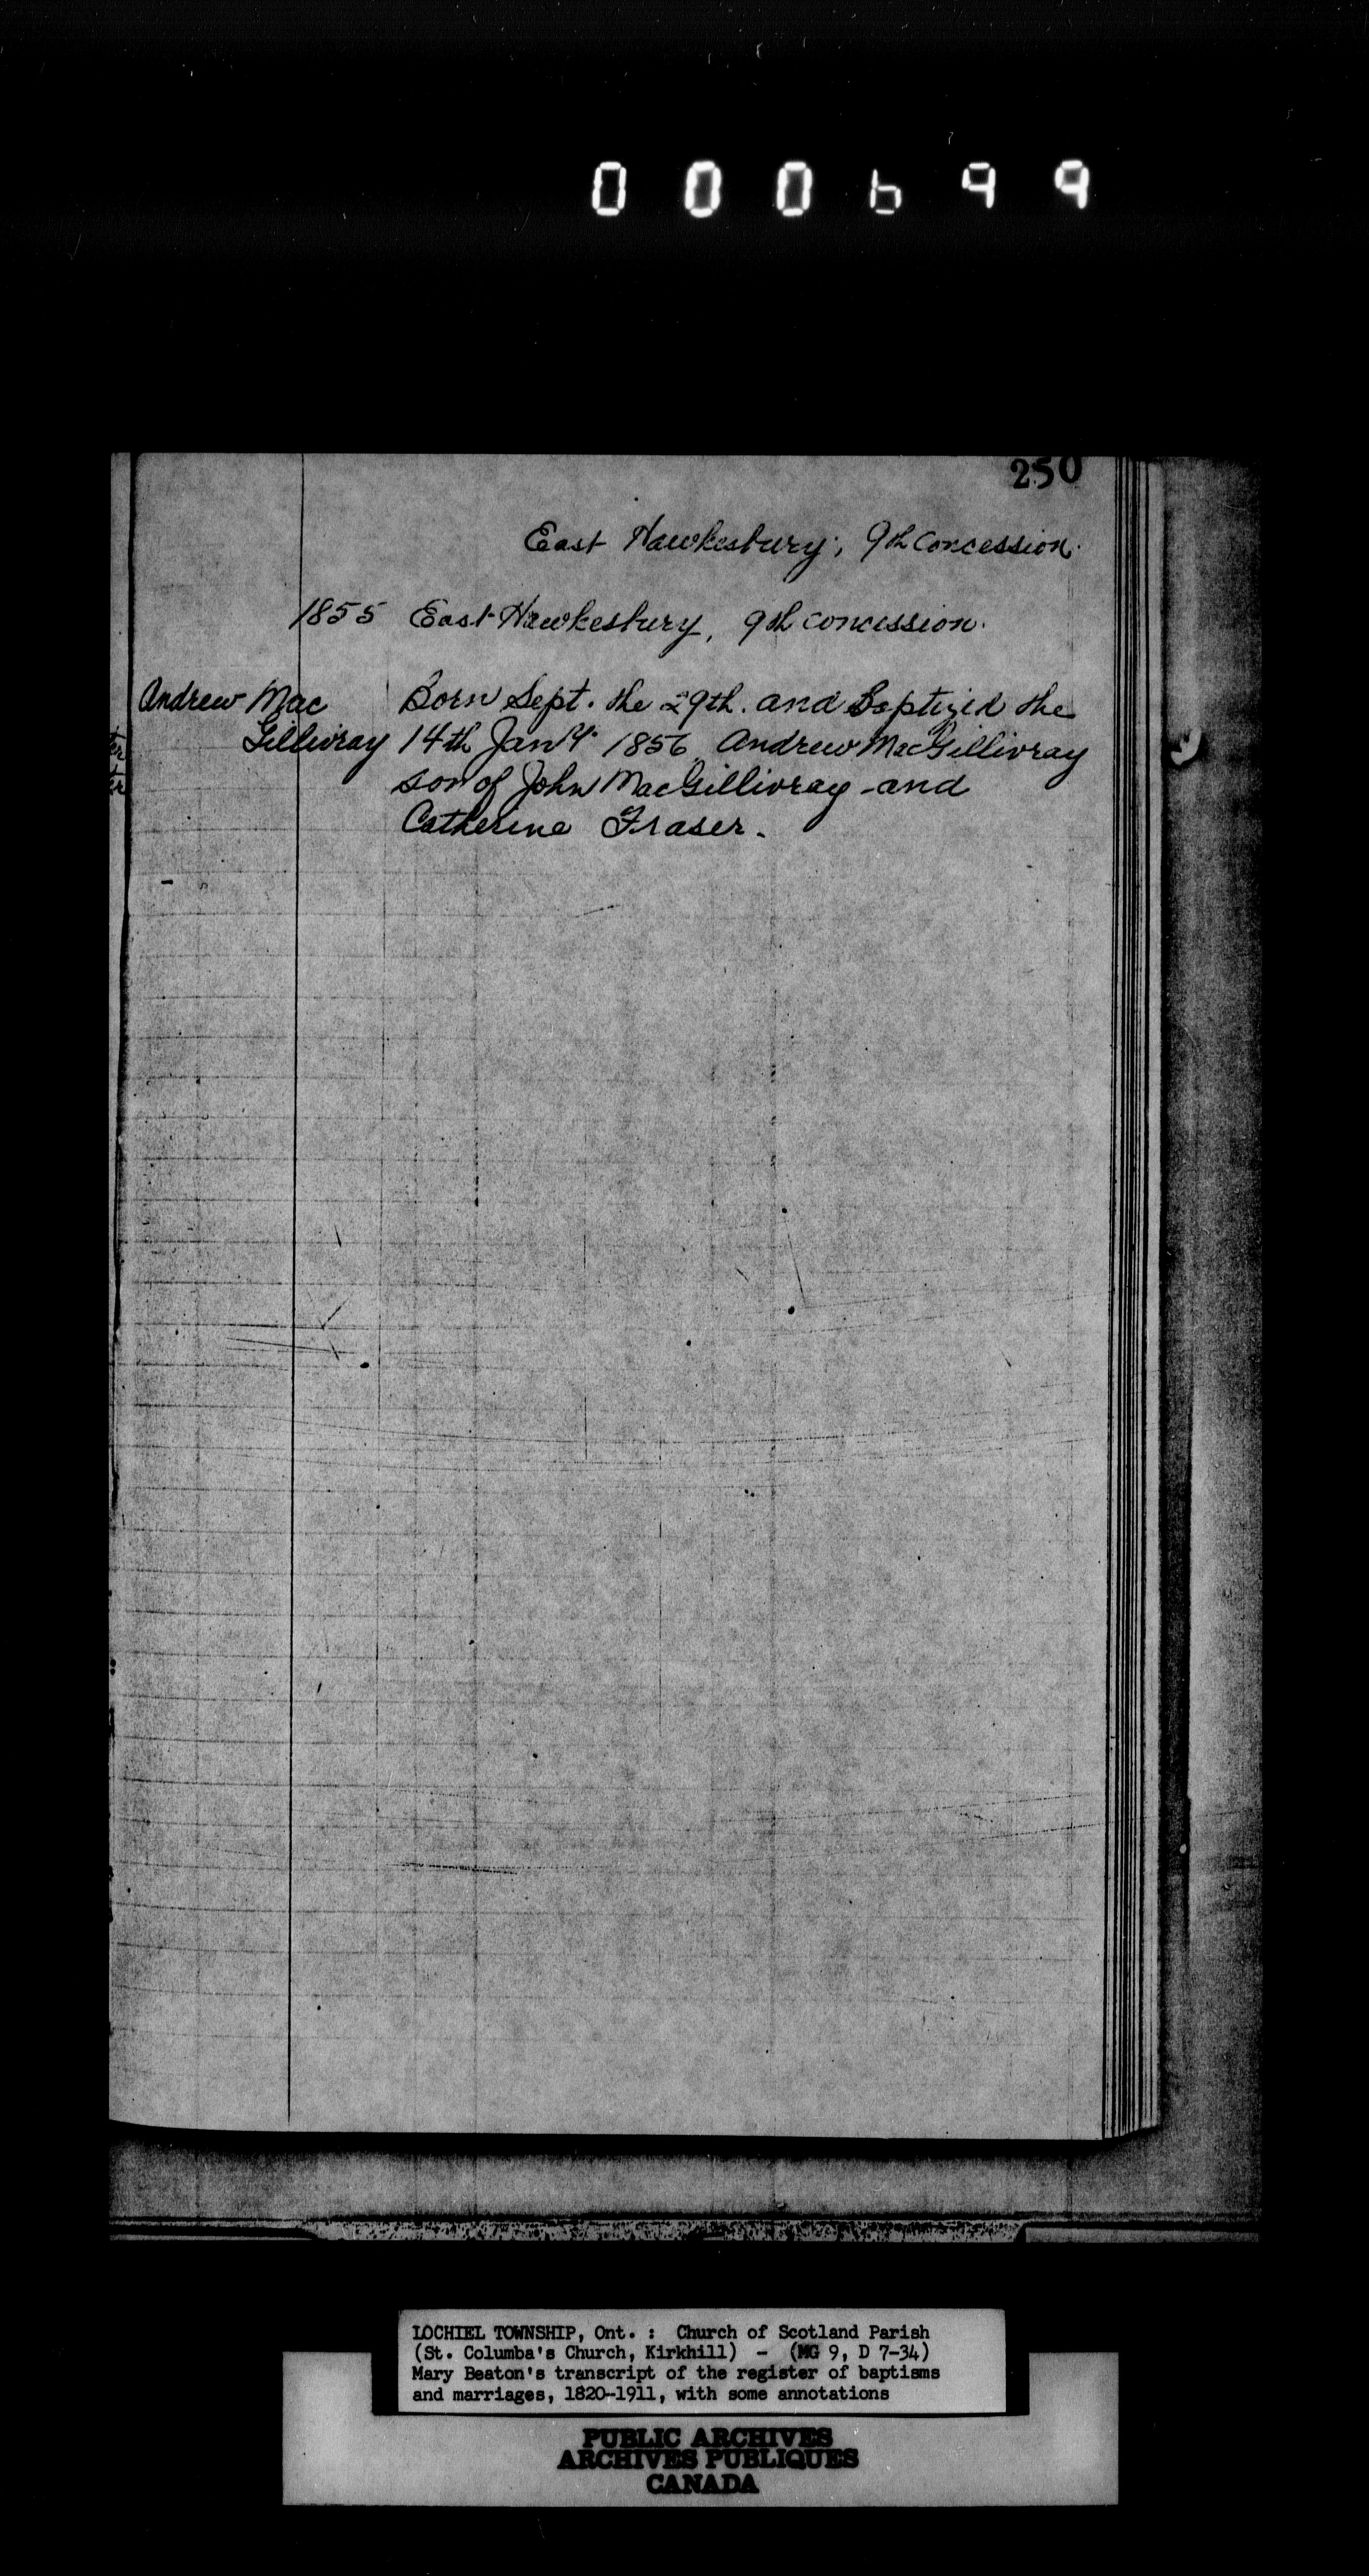 000699
250
East Hawkesbury; 9th Concession.
1855 East Hawkesbury, 9th concession.
Andrew Mac Born Sept. the 29th. and Baptized the
Gillivray 14th Jany. 1856 Andrew MacGillivray
son of John MacGillivray and
Catherine Fraser.
LOCHIEL TOWNSHIP, Ont. : Church of Scotland Parish
(St. Columba's Church, Kirkhill) - (MG 9, D 7-34)
Mary Beaton's transcript of the register of baptisms
and marriages, 1820-1911, with some annotations
PUBLIC ARCHIVES
ARCHIVES PUBLIQUES
CANADA